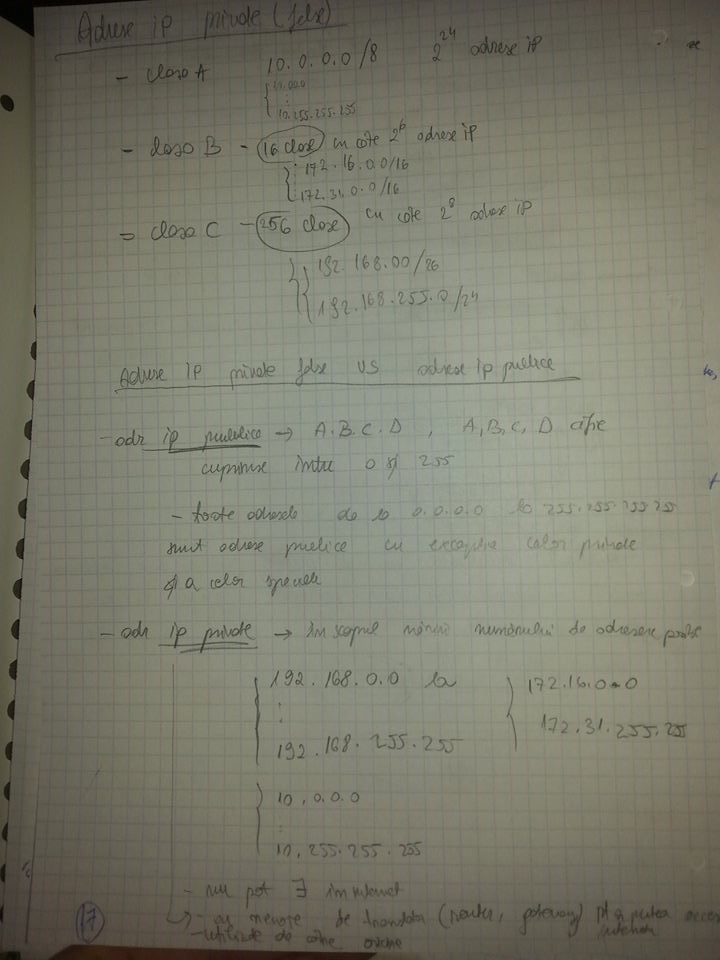 Adrese ip private (false)
- clasa A 10.0.0.0/8 2^24 adrese ip
10.0.0.0
:
10.255.255.255
- clasa B - 16 clase cu câte 2^16 adrese ip
172.16.0.0/16
172.31.0.0/16
- clasa C - 256 clase cu câte 2^8 adrese ip
192.168.00/
192.168.255.0/24
Adrese ip private false vs adrese ip publice
- adr ip publice → A.B.C.D , A,B,C,D
cuprinse între 0 și 255
- toate adresele de la 0.0.0.0 la 255.255.255.255
sunt adrese publice cu excepția celor private
și a celor speciale
- adr ip private → în scopul măririi numărului de adrese
192.168.0.0 la
:
192.168.255.255
172.16.0.0
172.31.255.255
10.0.0.0
:
10.255.255.255
- nu pot ∃ in internet
- au nevoie de (router, gateway) pt a putea
- utilizate de către oricine
17